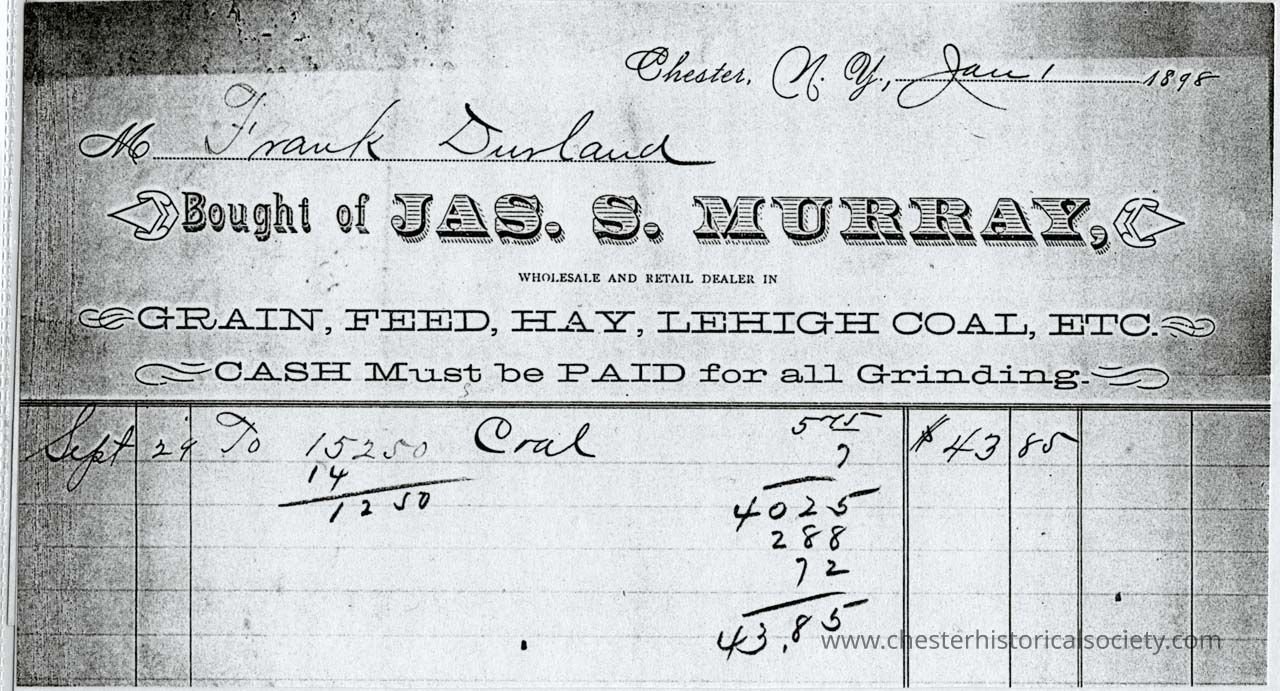 Chester, N. Y., Jan 1 1898
M Frank Durland
Bought of JAS. S. MURRAY,
WHOLESALE AND RETAIL DEALER IN
GRAIN, FEED, HAY, LEHIGH COAL, ETC.
CASH Must be PAID for all Grinding.
Sept 29 To 15250 Coal 575 $ 43 85
14 7
1250 4025
288
72
43.85
www.chesterhistoricalsociety.com